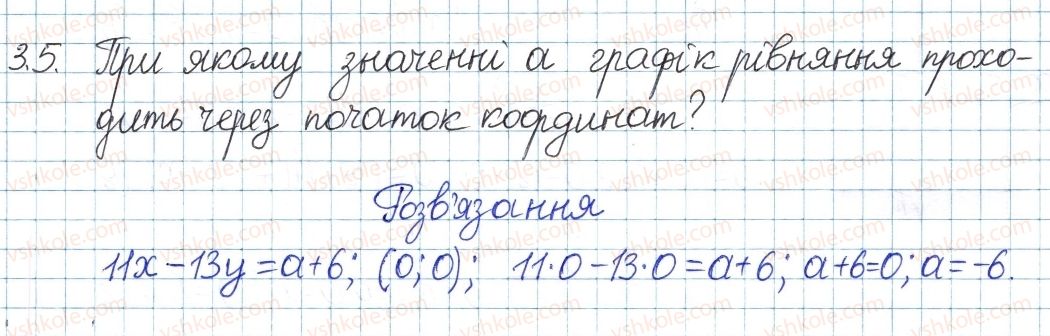 3.5. При якому значенні а графік рівняння прохо-
дить через початок координат?
Розв'язання
11x – 13y = a + 6; (0; 0); 11·0 – 13·0 = a + 6; a + 6 = 0; a = -6.